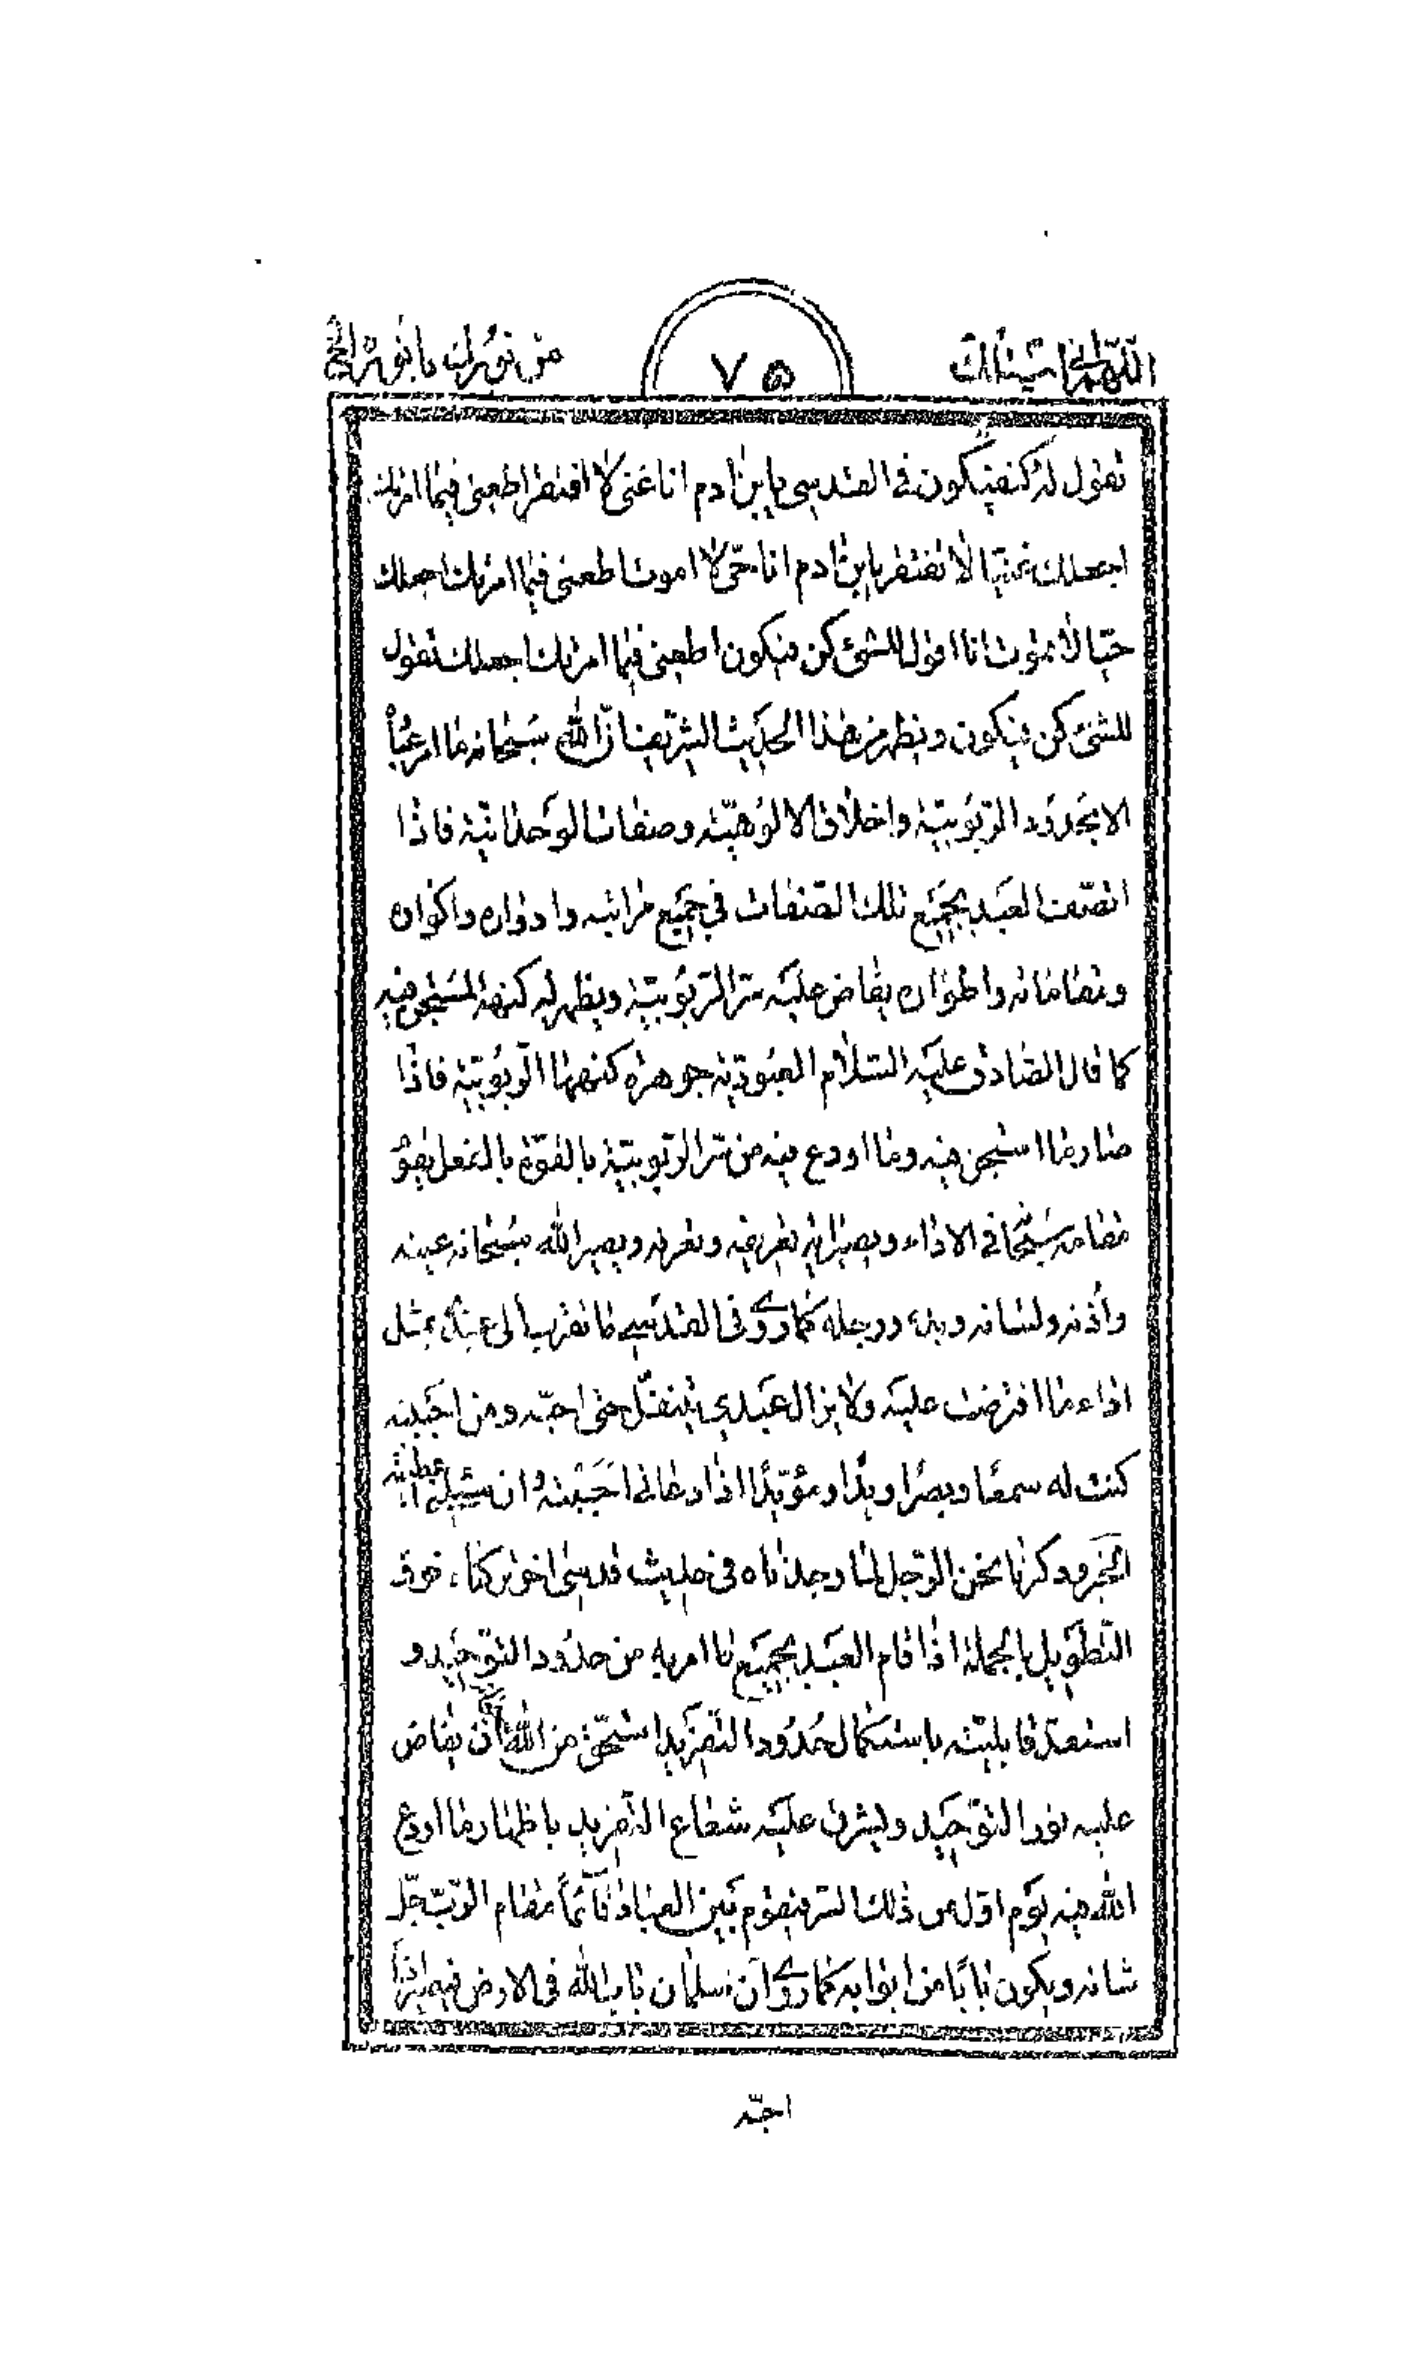 اللهم انى اسئلك
٧٥
من نورك بانوره الخ
تقول له كن فيكون فى القدسى يابن ادم انا غنى لا افتقر اطعنى فيما امرتك
اجعلك غنيا لا تفتقر يابن ادم انا حى لا اموت اطعنى فيما امرتك اجعلك
حيا لا تموت انا اقول للشئ كن فيكون اطعنى فيما امرتك اجعلك تقول
للشئ كن فيكون ويظهر من هذا الحديث الشريف ان الله سبحانه ما امر عبدا
الا بحدود الربوبية واخلاق الالوهية وصفات الوحدانية فاذا
اتصف العبد بجميع تلك الصفات فى جميع مراتبه وادواره واكواره
ومقاماته واطواره يفاض عليه سر الربوبية ويظهر له كنهه المستجن فيه
كما قال الصادق عليه السلام العبودية جوهرة كنهها الربوبية فاذا
صار ما استجن فيه وما اودع فيه من سر الربوبية بالقوة بالفعل يقوم
مقامه سبحانه فى الاداء ويصير اية تعريفه وتعرفه ويصير الله سبحانه عينه
واذنه ولسانه ويده ورجله كما روى فى القدسى ما تقرب الى عبدى بمثل
اداء ما افترضت عليه ولا يزال عبدى يتنفل حتى احبه ومن احببته
كنت له سمعا وبصرا ويدا ومؤيدا اذا دعانى اجبته وان سئلنى اعطيته
الخبر وذكرنا نحن الرجل لما وجدناه فى حديث قدسى اخر تركناه خوف
التطويل بالجملة اذا قام العبد بجميع ما امر به من حدود التوحيد و
استعد قابليته باستكمال حدود التفريد استحق من الله ان يفاض
عليه نور التوحيد وليشرق عليه شعاع التفريد باظهار ما اودع
الله فيه يوم اول من ذلك السر فيقوم بين العباد قائما مقام الرب جل
شانه ويكون بابا من ابوابه كما روى ان سلمان باب الله فى الارض